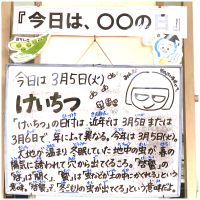 『今日は、〇〇の日』
今日は3月5日(火)
けいちつ
「けいちつ」の日付は、近年は3月5日または
3月6日で、年によって異なる。今年は3月5日(火)。
大地が温まり冬眠していた地中の虫が、春の
陽気に誘われて穴から出てくるころ。「啓蟄」の
「啓」は「開く」、「蟄」は「虫などが土の中にかくれる」という
意味。「啓蟄」で「冬ごもりの虫が出てくる」という意味だよ。